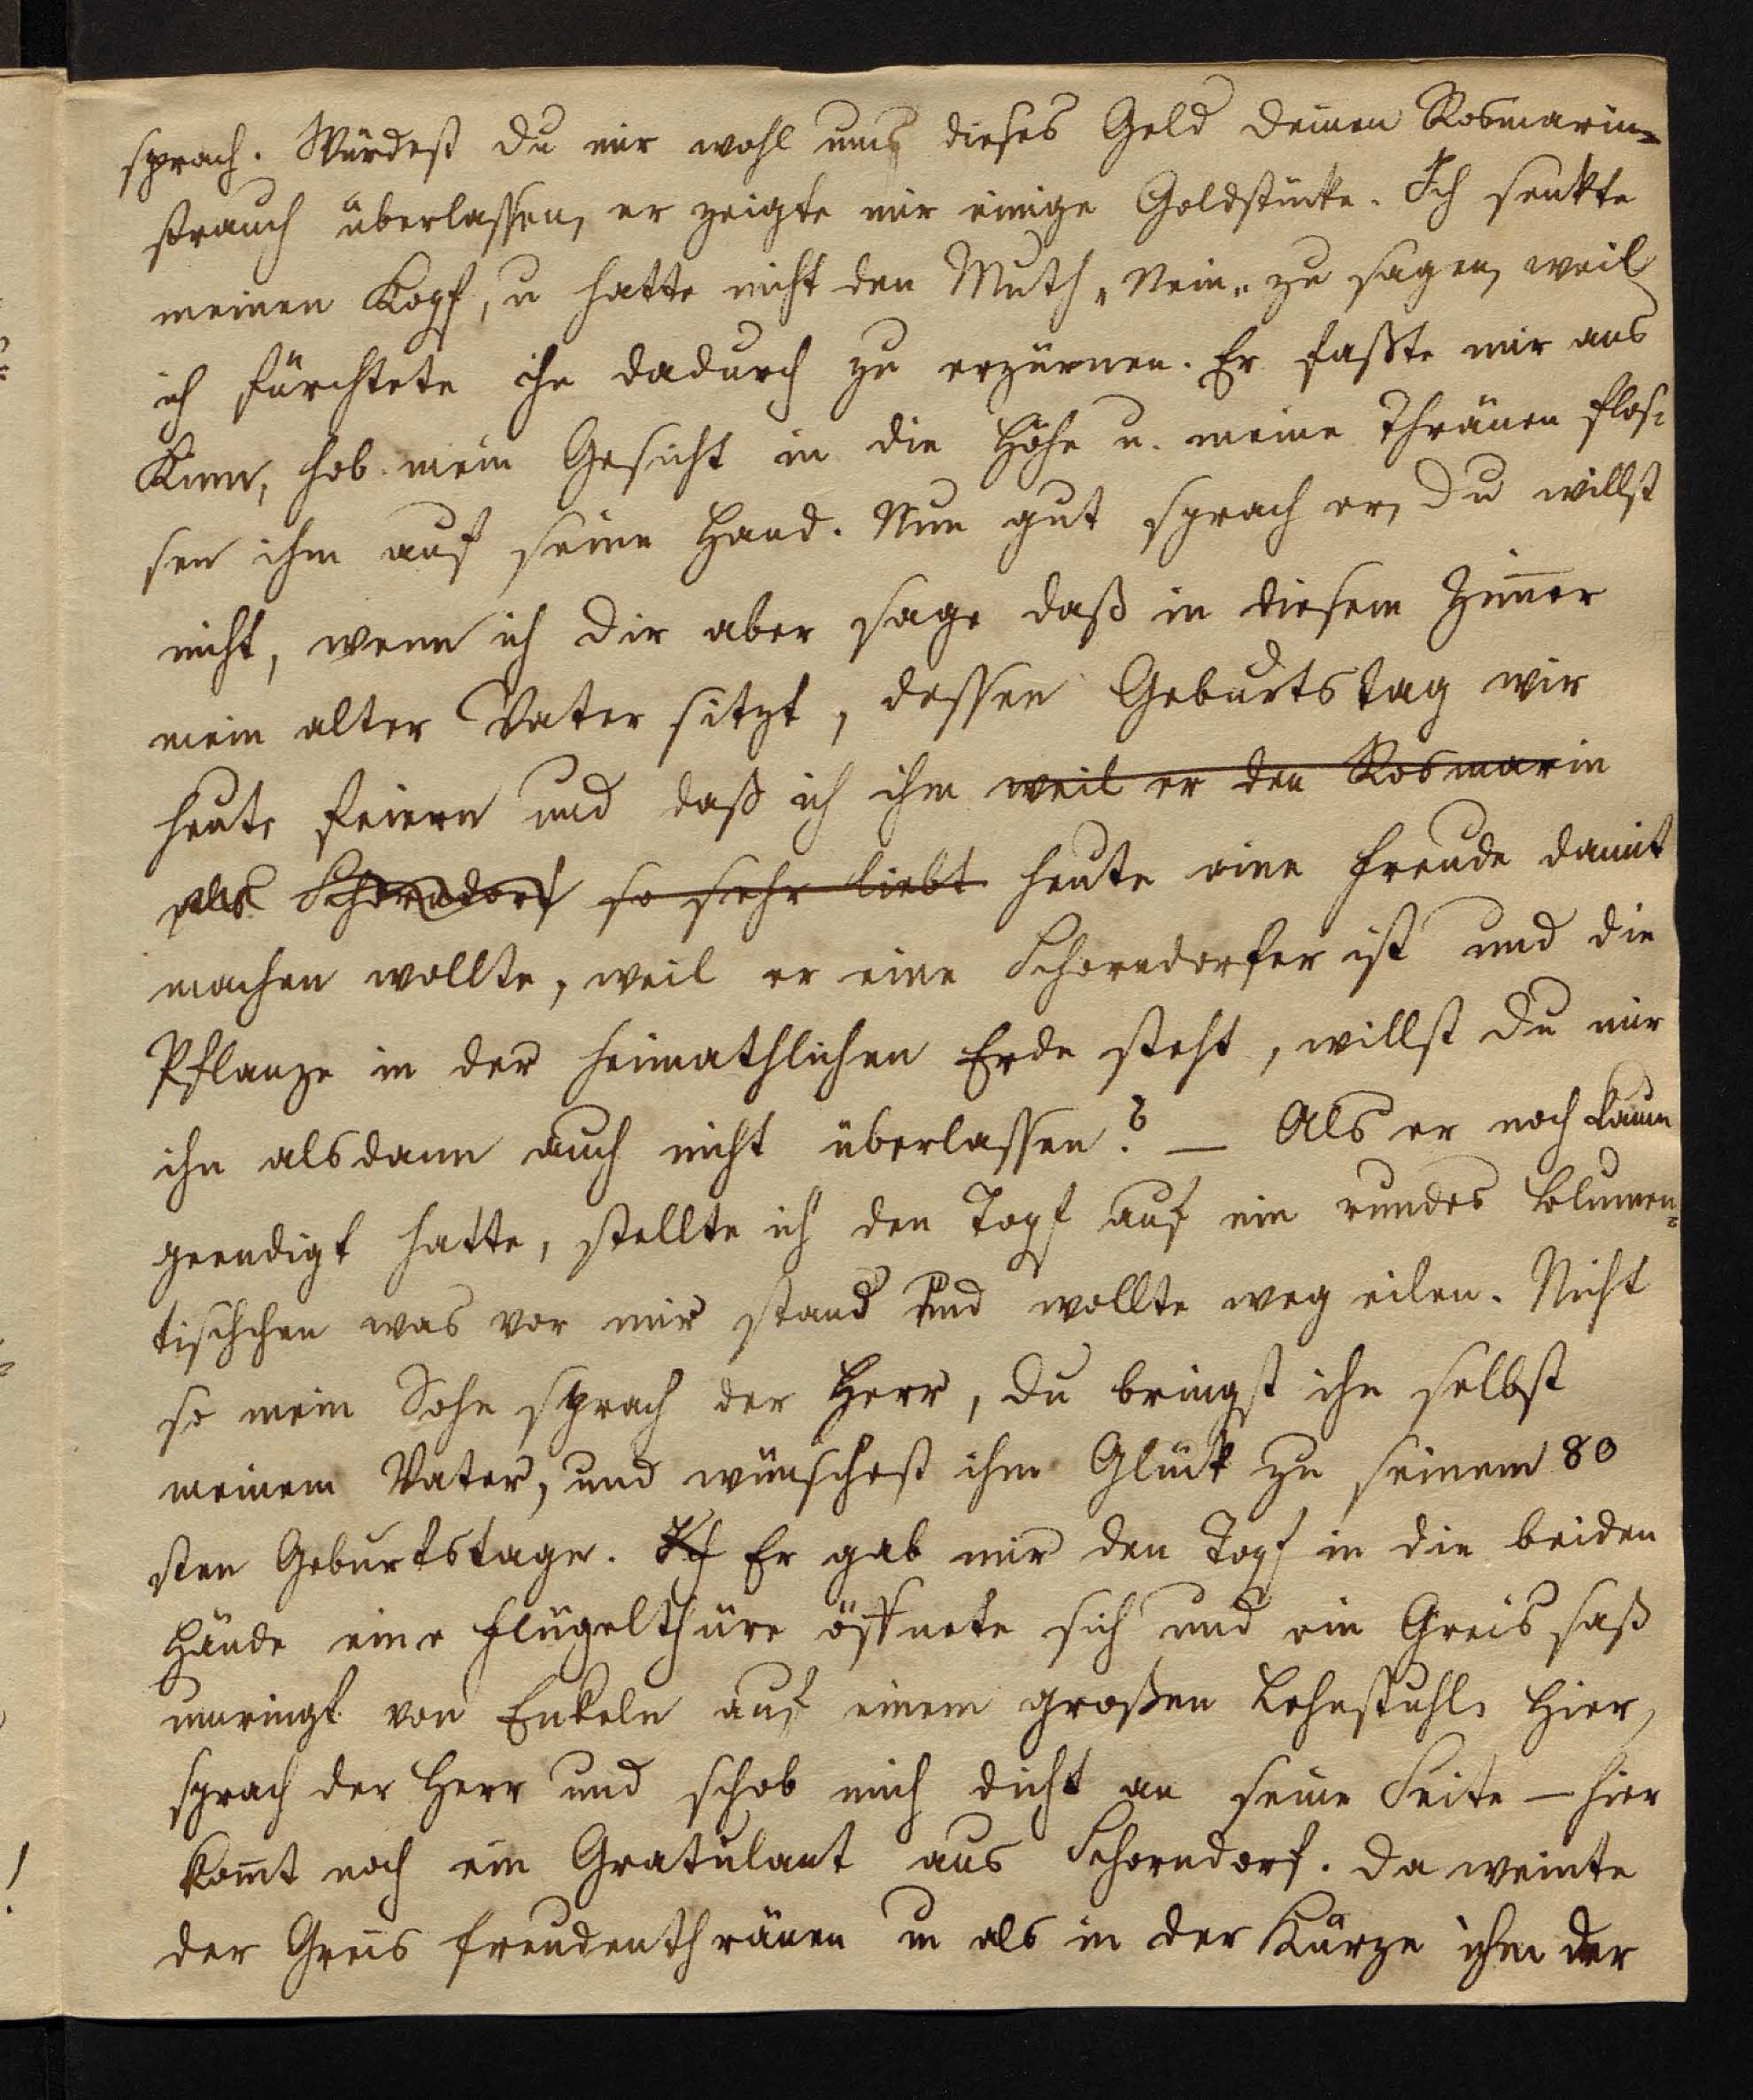 sprach. Würdest du mir wohl um dieses Geld deinen Rosmarin=
strauch überlassen, er zeigte mir einige Goldstücke. Ich senkte
meinen Kopf, u hatte nicht den Muth „Nein„ zu sagen, weil
ich fürchtete ihn dadurch zu erzürnen. Er faßte mir ans
Kinn, hob mein Gesicht in die Höhe u. meine Thränen flos=
sen ihm auf seine Hand. Nun gut sprach er, du willst
nicht, wenn ich dir aber sage daß in diesem Zim̅er
mein alter Vater sitzt, dessen Geburtstag wir
heute feiern und daß ich ihm weil er den Rosmarin
als Schorndorf so sehr liebt heute eine Freude damit
machen wollte, weil er eine Schorndorfer ist und die
Pflanze in der heimathlichen Erde steht, willst du mir
ihn alsdann auch nicht überlassen? — Als er noch kaum
geendigt hatte, stellte ich den Topf auf ein rundes Blumen=
tischchen was vor mir stand und wollte weg eilen. Nicht
so mein Sohn sprach der Herr, du bringst ihn selbst
meinem Vater, und wünschest ihm Glück zu seinem 80
sten Geburtstage. Ich Er gab mir den Topf in die beiden
Hände eine Flügelthüre öffnete sich und ein Greis saß
umringt von Enkeln auf einem großen Lehnstuhl. Hier,
sprach der Herr und schob mich dicht an seine Seite — hier
kom̅t noch ein Gratulant aus Schorndorf. Da weinte
der Greis Freudenthränen u als in der Kürze ihm der